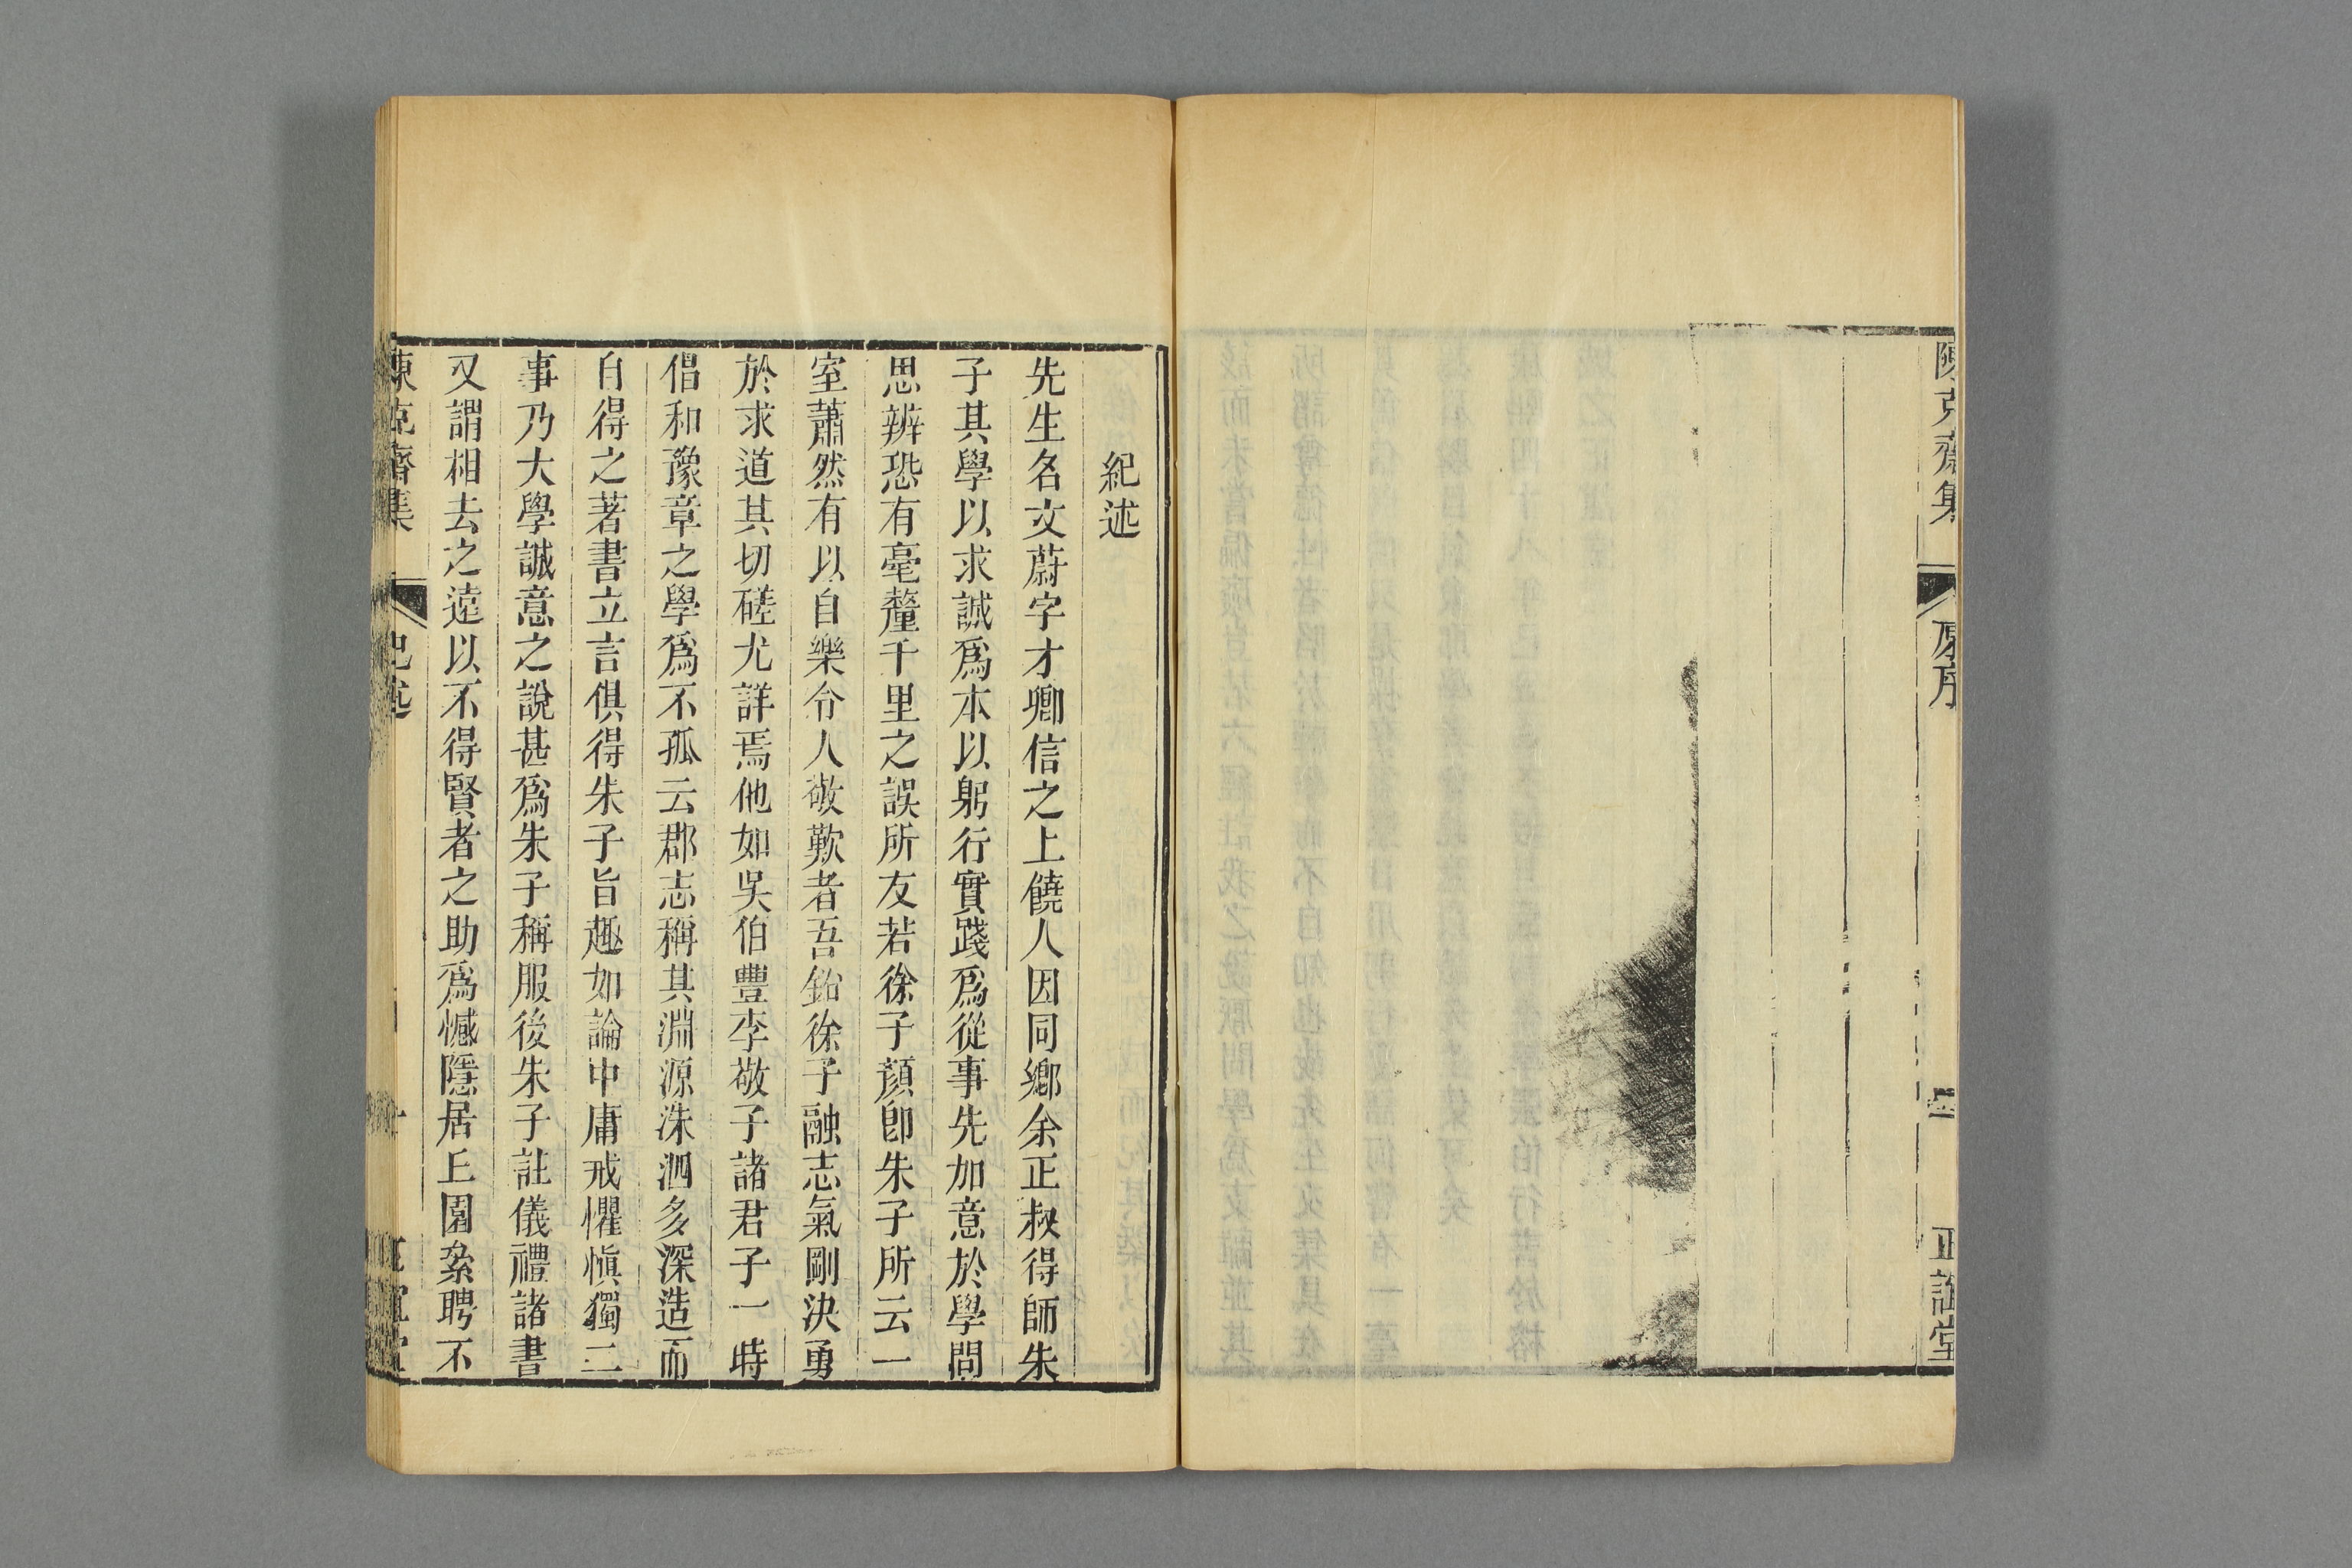 陳克齋集
原序
二
正誼堂
紀述
先生名文蔚字才卿信之上饒人因同鄉余正叔得師朱
子其學以求誠爲本以躬行實踐爲從事先加意於學問
思辨恐有毫釐千里之誤所友若徐子顏卽朱子所云一
室蕭然有以自樂令人敬歎者吾鉛徐子融志氣剛決勇
於求道其切磋尤詳焉他如吳伯豐李敬子諸君子一時
倡和豫章之學爲不孤云郡志稱其淵源洙泗多深造而
自得之著書立言俱得朱子旨趣如論中庸戒懼愼獨二
事乃大學誠意之說甚爲朱子稱服後朱子註儀禮諸書
又謂相去之遠以不得賢者之助爲憾隱居丘園絫聘不
陳克齋集
紀述
一